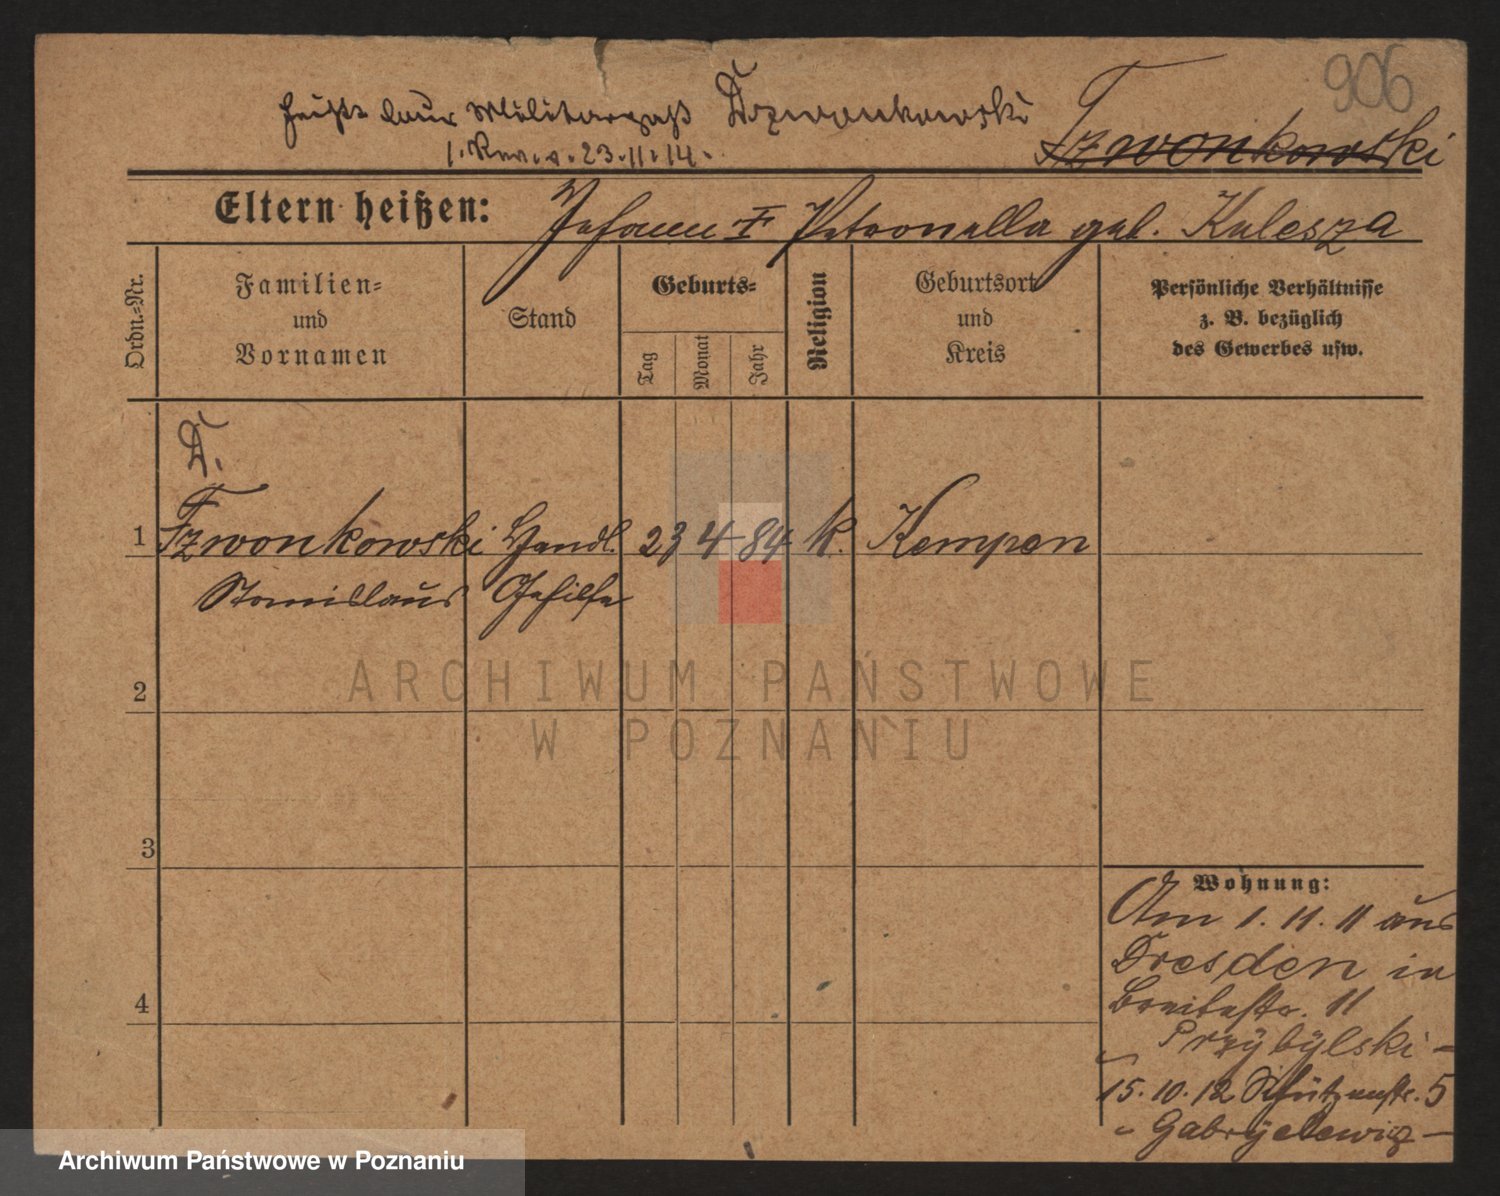 906
heißt laut Militärpaß Dzwonkowski
1. Rev. v. 23.11.14.
Tzwonkowski
Eltern heißen: Johann † Petronella geb. Kulesza
Ordn.-Nr.
Familien-
und
Vornamen
Stand
Geburts-
Tag
Monat
Jahr
Religion
Geburtsort
und
Kreis
Persönliche Verhältnisse
z. B. bezüglich
des Gewerbes usw.
D.
1 Tzwonkowski Handl. 23 4 84 k. Kempen
Stanislaus Gehilfe
2
3
4
Wohnung:
Am 1.11.11 aus
Dresden in
Breitestr. 11
" Przybylski -
15.10.12 Schützenstr. 5
" Gabryelewicz -
ARCHIWUM PAŃSTWOWE
W POZNANIU
Archiwum Państwowe w Poznaniu